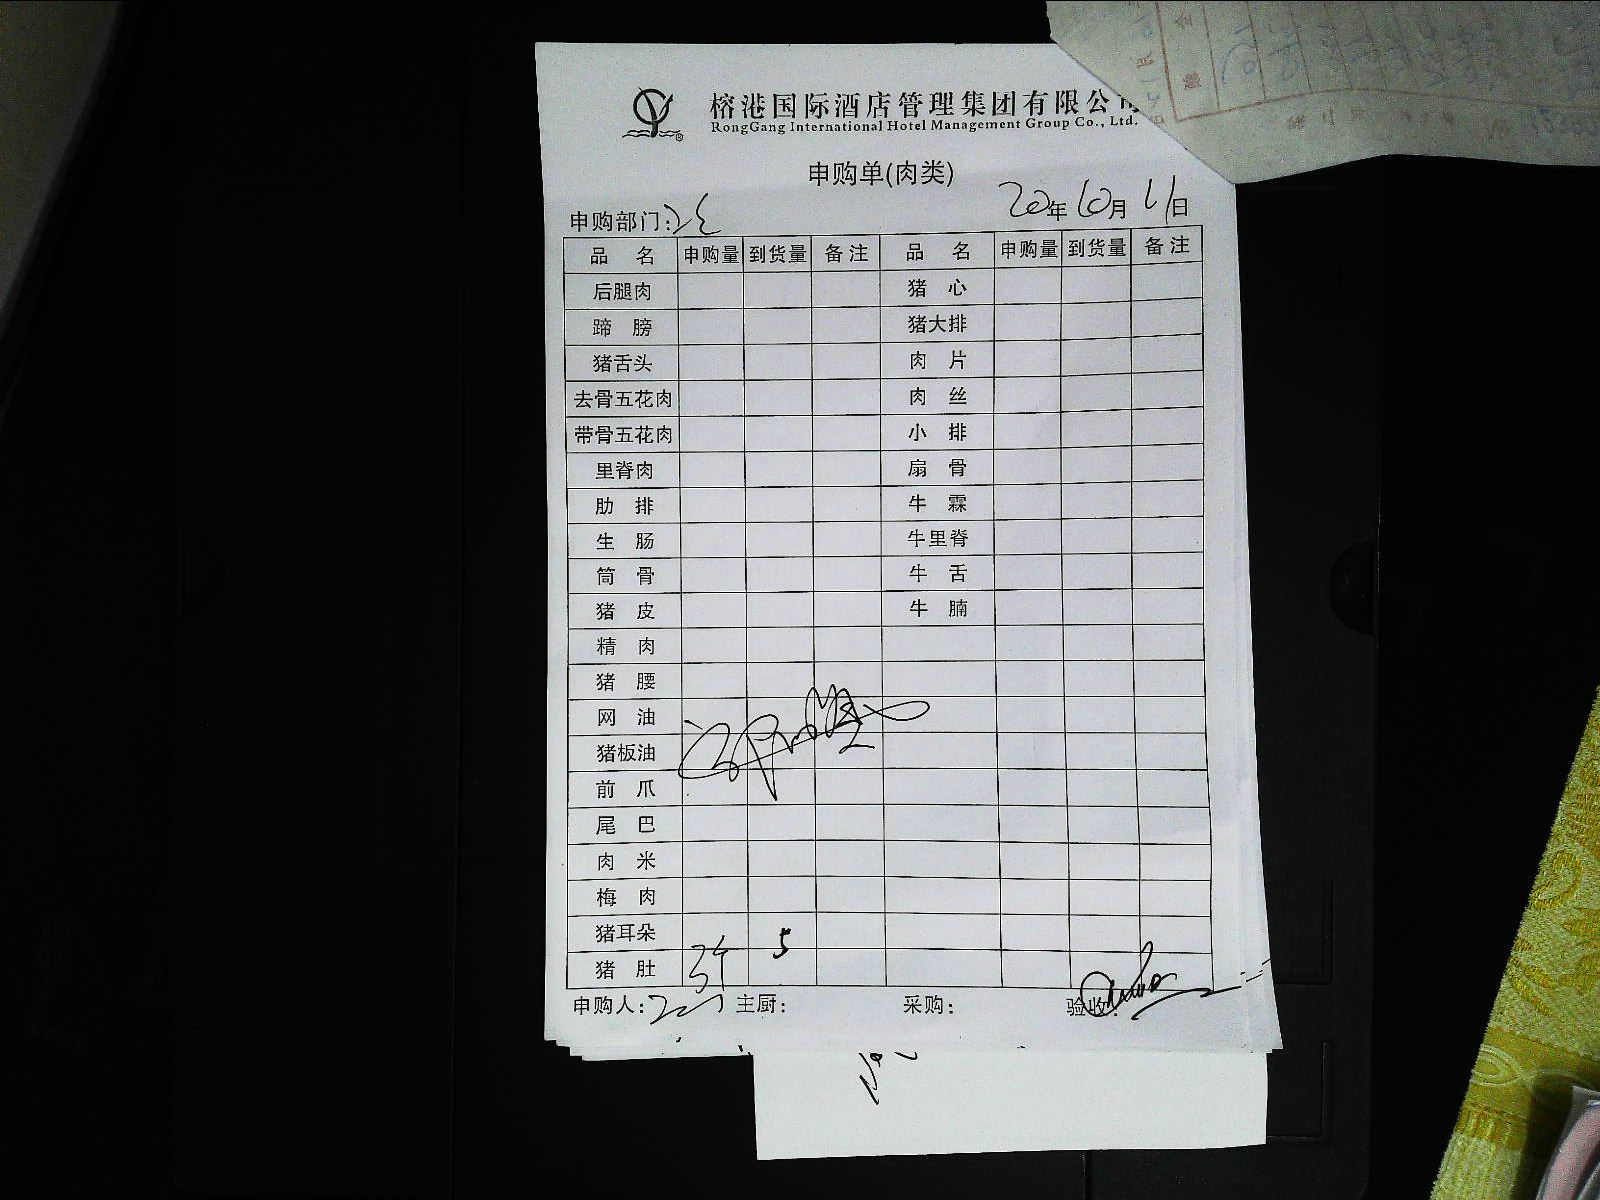 榕港国际酒店管理集团有限公司
RongGang International Hotel Management Group Co., Ltd.
申购单(肉类)
20年10月11日
申购部门:
品 名 申购量 到货量 备注 品 名 申购量 到货量 备注
后腿肉 猪 心
蹄 膀 猪大排
猪舌头 肉 片
去骨五花肉 肉 丝
带骨五花肉 小 排
里脊肉 扇 骨
肋 排 牛 霖
生 肠 牛里脊
筒 骨 牛 舌
猪 皮 牛 腩
精 肉
猪 腰
网 油
猪板油
前 爪
尾 巴
肉 米
梅 肉
猪耳朵
猪 肚 5
申购人: 主厨: 采购: 验收: